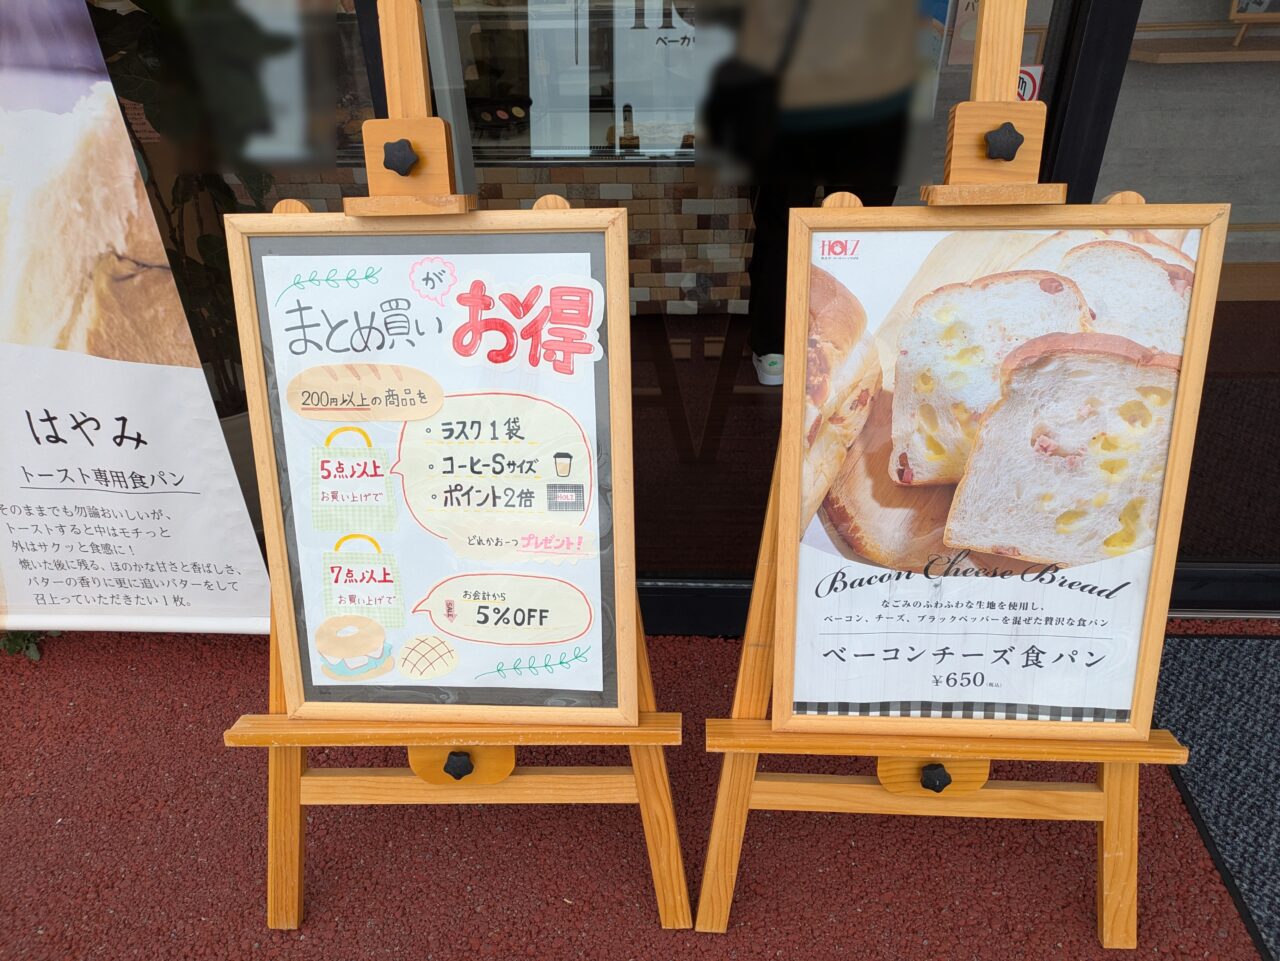 はやみ
トースト専用食パン
そのままでも勿論おいしいが、
トーストすると中はモチっと
外はサクッと食感に！
焼いた後に残る、ほのかな甘さと香ばしさ、
バターの香りに更に追いバターをして
召上っていただきたい1枚。
まとめ買いがお得
200円以上の商品を
5点以上
お買い上げで
・ラスク1袋
・コーヒーSサイズ
・ポイント2倍
HOLZ
どれかお一つプレゼント！
7点以上
お買い上げで
お会計から
SALE
5%OFF
HOLZ
Bacon Cheese Bread
なごみのふわふわな生地を使用し、
ベーコン、チーズ、ブラックペッパーを混ぜた贅沢な食パン
ベーコンチーズ食パン
¥650(税込)